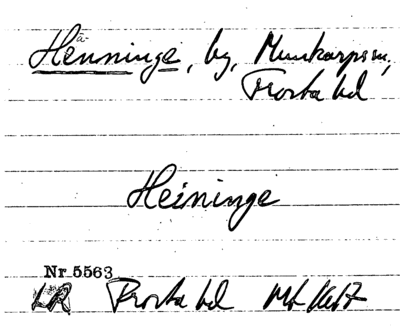 Hänninge, by, Munkarps sn,
Frosta hd
Heininge
Nr 5563
LR Frosta hd